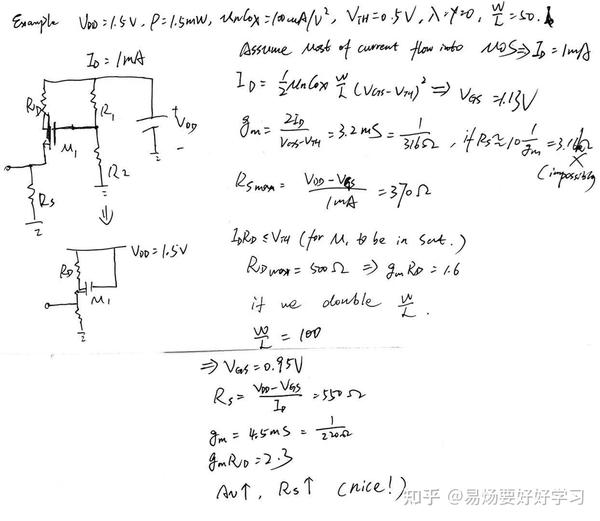 Example VDD=1.5V, P=1.5mW, μnCox=100μA/V², VTH=0.5V, λ=γ=0, W/L=50.
Assume most of current flow into MOS ⇒ ID=1mA
ID=1mA
RD
R1
M1
VDD
+
-
R2
RS
ID = 1/2 μnCox W/L (VGS-VTH)² ⇒ VGS=1.13V
gm = 2ID/(VGS-VTH) = 3.2mS = 1/316Ω, if RS≈10 1/gm = 3.16Ω
× (impossible)
RSmax = (VDD-VGS)/1mA = 370Ω
IDRD ≤ VTH (for M1 to be in sat.)
RDmax = 500Ω ⇒ gmRD = 1.6
VDD=1.5V
RD
M1
if we double W/L.
W/L = 100
⇒ VGS=0.95V
RS = (VDD-VGS)/ID = 550Ω
gm = 4.5mS = 1/220Ω
gmRD = 2.3
AV↑, RS↑ (nice!)
知乎 @易炀要好好学习